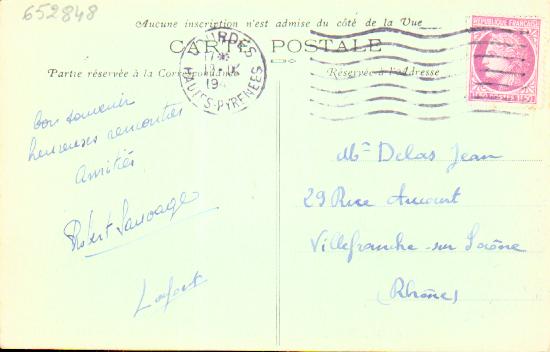 652848
Aucune inscription n'est admise du côté de la Vue
CARTE POSTALE
Partie réservée à la Correspondance
Réservée à l'adresse
LOURDES
HAUTES-PYRENEES
REPUBLIQUE FRANÇAISE
bon souvenir
heureuses rencontres
Amitiés
Robert Sauvage
Mr Delas Jean
29 Rue
Villefranche-sur Saône
(Rhône)